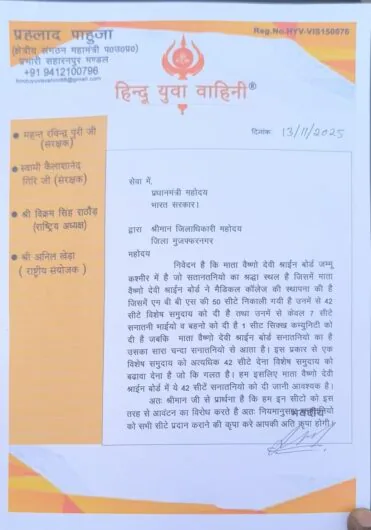 प्रहलाद पाहुजा
(क्षेत्रीय संगठन महामंत्री प०उ०प्र०)
प्रभारी सहारनपुर मण्डल
+91 9412100796
Reg.No.HYV-VIS150876
हिन्दू युवा वाहिनी®
दिनांक 13/11/2025
महन्त रविन्द्र पुरी जी
(संरक्षक)
स्वामी कैलाशानंद
गिरि जी (संरक्षक)
श्री विक्रम सिंह राठौड़
(राष्ट्रिय अध्यक्ष)
श्री अनिल खेड़ा
( राष्ट्रीय संयोजक )
सेवा में,
प्रधानमंत्री महोदय
भारत सरकार।
द्वारा श्रीमान जिलाधिकारी महोदय
जिला मुजफ्फरनगर
महोदय
निवेदन है कि माता वैष्णो देवी श्राईन बोर्ड जम्मू
कश्मीर में है जो सतानतनियों का श्रद्धा स्थल है जिसमें माता
वैष्णो देवी श्राईन बोर्ड ने मैडिकल कॉलेज की स्थापना की है
जिसमें एम बी बी एस की 50 सीटे निकाली गयी है उनमें से 42
सीटे विशेष समुदाय को दी है तथा उनमें से केवल 7 सीटे
सनातनी भाईयो व बहनो को दी है 1 सीट सिक्ख कम्युनिटी को
दी है जबकि माता वैष्णो देवी श्राईन बोर्ड सनातनियों का है
उसका सारा चन्दा सनातनियों से आता है। इस प्रकार से एक
विशेष समुदाय को अत्यधिक 42 सीटे देना विशेष समुदाय को
बढावा देना है जो कि गलत है। हम इसलिए माता वैष्णो देवी
श्राईन बोर्ड में ये 42 सीटें सनातनियों को दी जानी आवश्यक है।
अतः श्रीमान जी से प्रार्थना है कि हम इन सीटो को इस
तरह से आवंटन का विरोध करते है अतः नियमानुसार
को सभी सीटे प्रदान कराने की कृपा करे आपकी अति कृपा होगी।
भवदीय